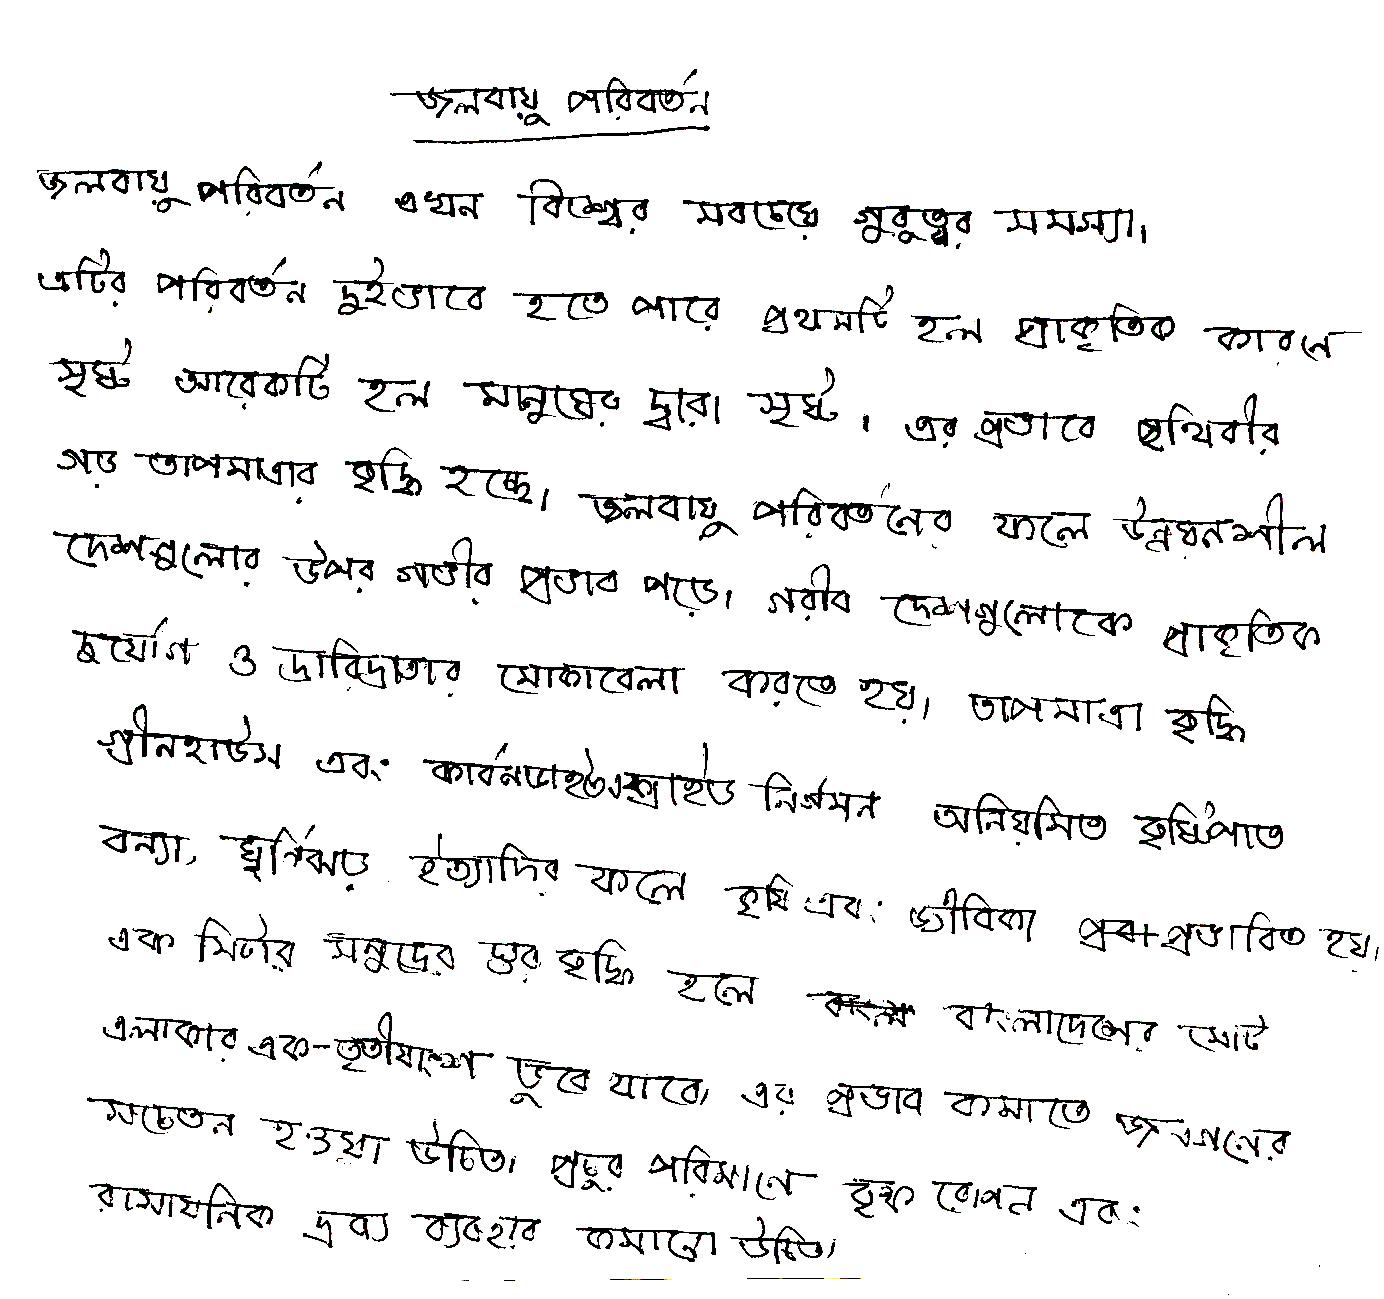 জলবায়ু পরিবর্তন
জলবায়ু পরিবর্তন এখন বিশ্বের সবচেয়ে গুরুত্বর সমস্যা।
এটির পরিবর্তন দুইভাবে হতে পারে প্রথমটি হল প্রাকৃতিক কারনে
সৃষ্ট আরেকটি হল মানুষের দ্বারা সৃষ্ট। এর প্রভাবে পৃথিবীর
গড় তাপমাত্রার বৃদ্ধি হচ্ছে। জলবায়ু পরিবর্তনের ফলে উন্নয়নশীল
দেশগুলোর উপর গভীর প্রভাব পড়ে। গরীব দেশগুলোকে প্রাকৃতিক
দুর্যোগ ও দ্রারিদ্রাতার মোকাবেলা করতে হয়। তাপমাত্রা বৃদ্ধি
গ্রীনহাউস এবং কার্বনডাইঅক্সাইড নির্গমন অনিয়মিত বৃষ্টিপাত
বন্যা, ঘূর্নিঝড় ইত্যাদির ফলে কৃষি এবং জীবিকা প্রভাবিত হয়।
এক মিটার সমুদ্রের স্তর বৃদ্ধি হলে বাংলাদেশের মোট
এলাকার এক-তৃতীয়াংশ ডুবে যাবে, এর প্রভাব কমাতে জনগনের
সচেতন হওয়া উচিত। প্রচুর পরিমানে বৃক্ষ রোপন এবং
রাসায়নিক দ্রব্য ব্যবহার কমানো উচিত।